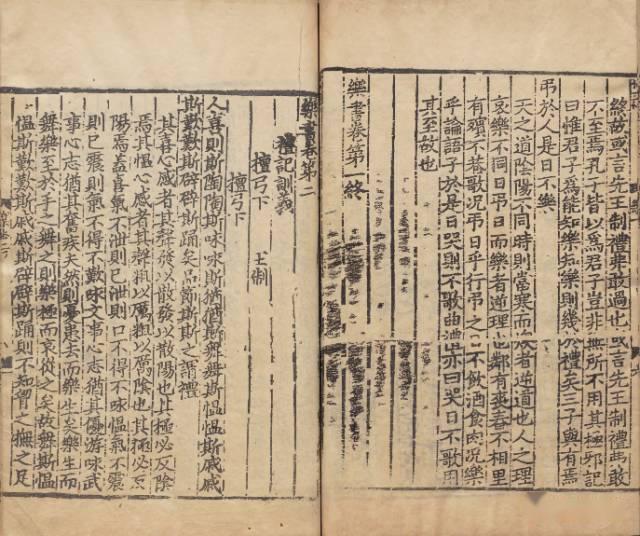 終故或言先王制禮弗敢過也或言先王制禮弗敢
不至焉孔子皆以為君子豈非無所不用其極邪記
曰惟君子為能知樂知樂則幾於禮矣三子與有焉
弔於人是日不樂
天之道陰陽不同時則當寒而者逆道也人之理
哀樂不同日弔日而樂者逆理也鄰有喪舂不相里
有殯不巷歌況弔日乎行弔之不飲酒食肉況樂
乎論語子於是日哭則不歌曲禮亦曰哭日不歌
其至故也
樂書卷第一終
樂書卷第二
禮記訓義
檀弓下 王制
檀弓下
人喜則斯陶陶斯咏咏斯猶猶斯舞舞斯慍慍斯戚戚
斯歎歎斯辟辟斯踊矣品節斯斯之謂禮
其喜心感者其聲發以散發以散陽也其極必反陰
焉其慍心感者其聲粗以厲粗以厲陰也其極必
陽焉蓋喜氣不泄則已泄則口不得不咏慍氣不震
則已震則氣不得不歎咏文事心志猶其優游咏武
事心志猶其奮疾夫然則憂患去而樂生焉樂生而
舞樂至於手之舞之則樂極而哀從之矣故舞斯慍
慍斯歎歎斯戚戚斯辟辟斯踊則不知胷之撫之足